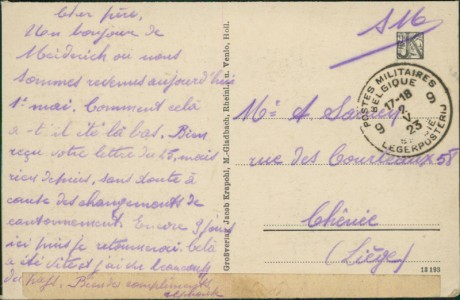 Cher père,
Mon bonjour de
Meiderich où nous
sommes revenus aujourd'hui
1er mai. Comment celà
a-t-il été là bas. Bien
reçu votre lettre du 25, mais
rien depuis, sans doute à
cause des changements de
cantonnement. Encore 9 jours
ici puis je retournerai. Celà
a été vite et j'ai vu beaucoup
de pays. Bien des compliments
Großverlag Jacob Krapohl, M.-Gladbach, Rheinl. u. Venlo, Holl.
S.M.
POSTES MILITAIRES
BELGIQUE
9 9
17-18
2
V
23
LEGERPOSTERIJ
Mr A
rue des Courteaux 58
Chênée
(Liège)
13 193